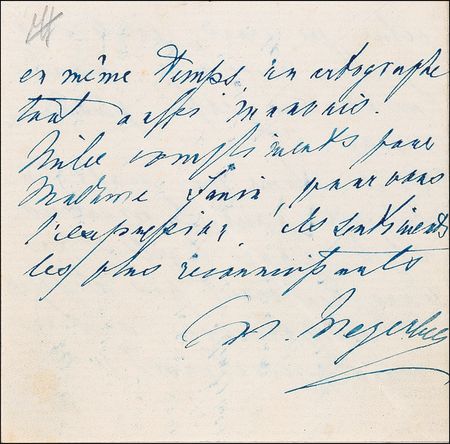 en même temps, un autographe
tout aussi mauvais.
Mille compliments pour
Madame Janin, pour vous
l'expression des sentiments
les plus reconnaissants
Meyerbeer